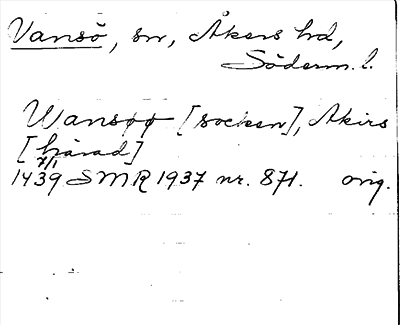 Vansö, sn, Åkers hd,
Söderm. l.
Wansøø [socken], Akirs
[härad]
7/1
1439 SMR 1937 nr. 871. orig.